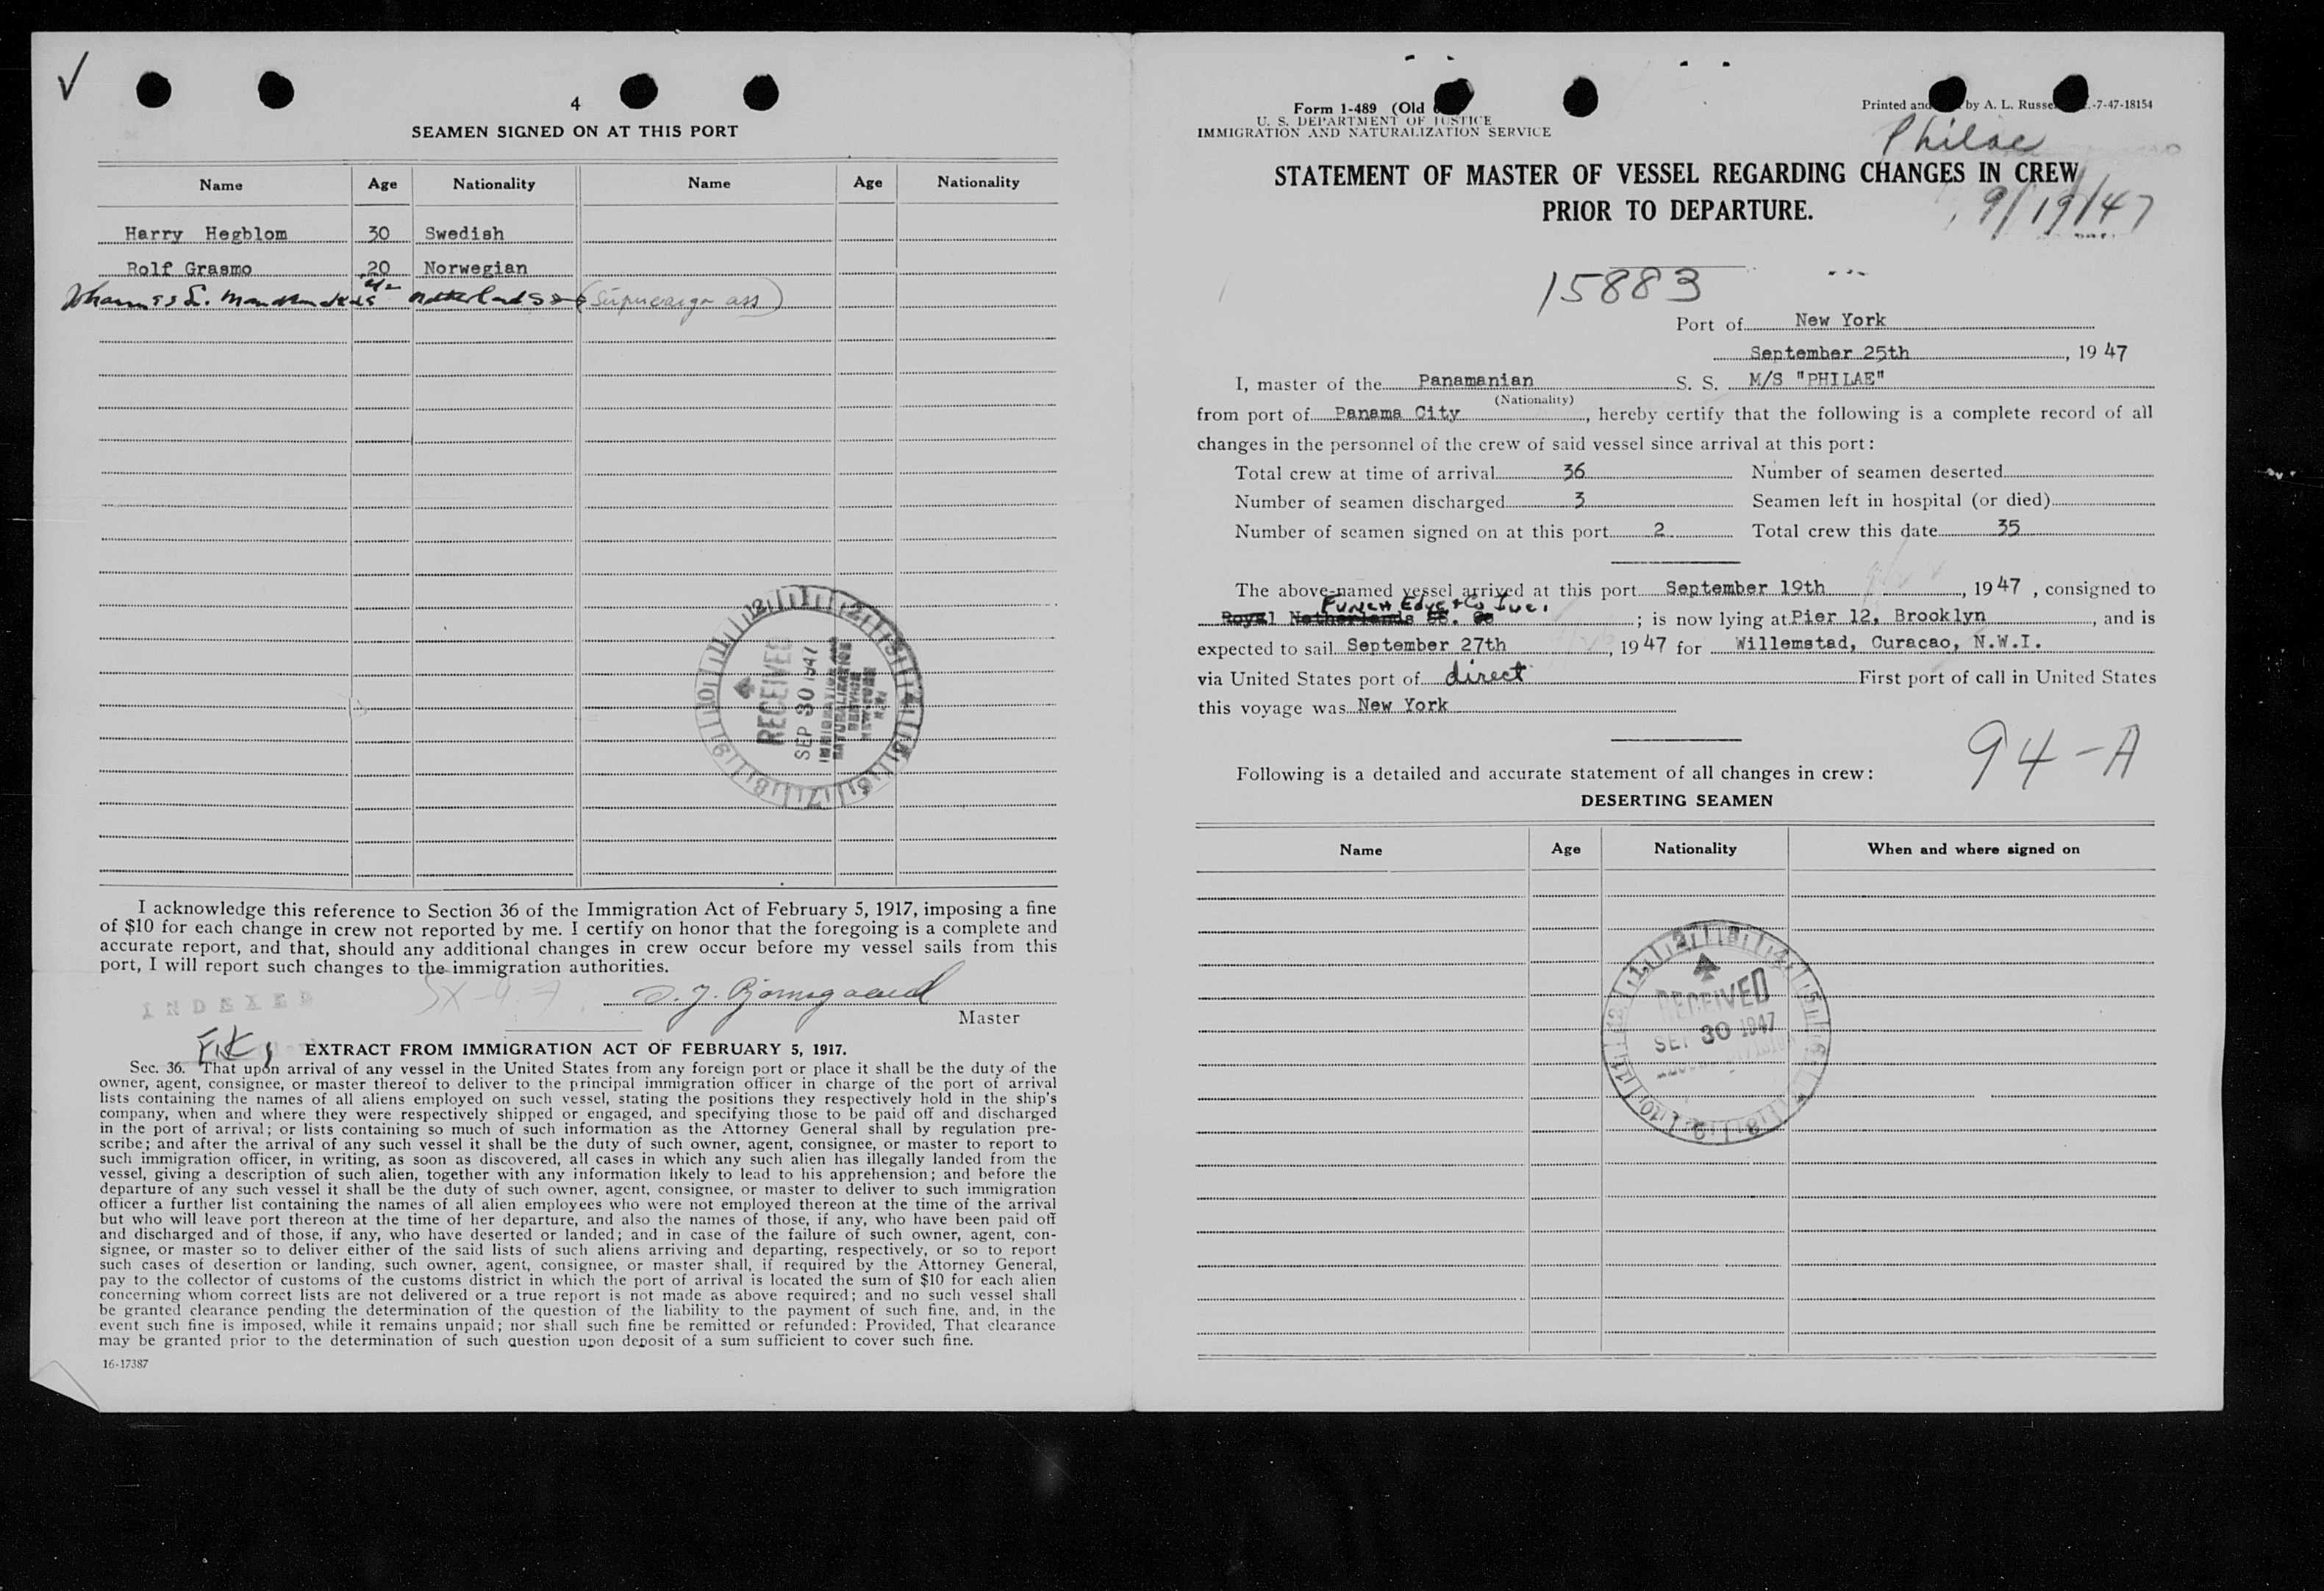 4
SEAMEN SIGNED ON AT THIS PORT
Name Age Nationality Name Age Nationality
Harry Hegblom 30 Swedish
Rolf Grasmo 20 Norwegian
(Supercargo ass)
RECEIVED
SEP 30 1947
IMMIGRATION &
NATURALIZATION
SERVICE
NEW YORK
N.Y.
I acknowledge this reference to Section 36 of the Immigration Act of February 5, 1917, imposing a fine
of $10 for each change in crew not reported by me. I certify on honor that the foregoing is a complete and
accurate report, and that, should any additional changes in crew occur before my vessel sails from this
port, I will report such changes to the immigration authorities.
INDEXED
Master
EXTRACT FROM IMMIGRATION ACT OF FEBRUARY 5, 1917.
Sec. 36. That upon arrival of any vessel in the United States from any foreign port or place it shall be the duty of the
owner, agent, consignee, or master thereof to deliver to the principal immigration officer in charge of the port of arrival
lists containing the names of all aliens employed on such vessel, stating the positions they respectively hold in the ship's
company, when and where they were respectively shipped or engaged, and specifying those to be paid off and discharged
in the port of arrival; or lists containing so much of such information as the Attorney General shall by regulation pre-
scribe; and after the arrival of any such vessel it shall be the duty of such owner, agent, consignee, or master to report to
such immigration officer, in writing, as soon as discovered, all cases in which any such alien has illegally landed from the
vessel, giving a description of such alien, together with any information likely to lead to his apprehension; and before the
departure of any such vessel it shall be the duty of such owner, agent, consignee, or master to deliver to such immigration
officer a further list containing the names of all alien employees who were not employed thereon at the time of the arrival
but who will leave port thereon at the time of her departure, and also the names of those, if any, who have been paid off
and discharged and of those, if any, who have deserted or landed; and in case of the failure of such owner, agent, con-
signee, or master so to deliver either of the said lists of such aliens arriving and departing, respectively, or so to report
such cases of desertion or landing, such owner, agent, consignee, or master shall, if required by the Attorney General,
pay to the collector of customs of the customs district in which the port of arrival is located the sum of $10 for each alien
concerning whom correct lists are not delivered or a true report is not made as above required; and no such vessel shall
be granted clearance pending the determination of the question of the liability to the payment of such fine, and, in the
event such fine is imposed, while it remains unpaid; nor shall such fine be remitted or refunded: Provided, That clearance
may be granted prior to the determination of such question upon deposit of a sum sufficient to cover such fine.
16-17387
Form 1-489 (Old
U. S. DEPARTMENT OF JUSTICE
IMMIGRATION AND NATURALIZATION SERVICE
Printed and by A. L. Russe -7-47-18154
Philae
STATEMENT OF MASTER OF VESSEL REGARDING CHANGES IN CREW
PRIOR TO DEPARTURE.
9/19/47
15883
Port of New York
September 25th, 1947
I, master of the Panamanian S. S. M/S "PHILAE"
(Nationality)
from port of Panama City, hereby certify that the following is a complete record of all
changes in the personnel of the crew of said vessel since arrival at this port:
Total crew at time of arrival 36 Number of seamen deserted
Number of seamen discharged 3 Seamen left in hospital (or died)
Number of seamen signed on at this port 2 Total crew this date 35
The above-named vessel arrived at this port September 19th, 1947, consigned to
Funch Edye & Co Inc.
Royal Netherlands SS. Co; is now lying at Pier 12, Brooklyn, and is
expected to sail September 27th, 1947 for Willemstad, Curacao, N.W.I.
via United States port of direct First port of call in United States
this voyage was New York
94-A
Following is a detailed and accurate statement of all changes in crew:
DESERTING SEAMEN
Name Age Nationality When and where signed on
RECEIVED
SEP 30 1947